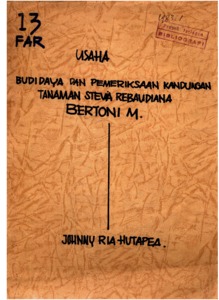 13
FAR
USAHA
BUDIDAYA DAN PEMERIKSAAN KANDUNGAN
TANAMAN STEVIA REBAUDIANA
BERTONI M.
JOHNNY RIA HUTAPEA.
BIBLIOGRAFI